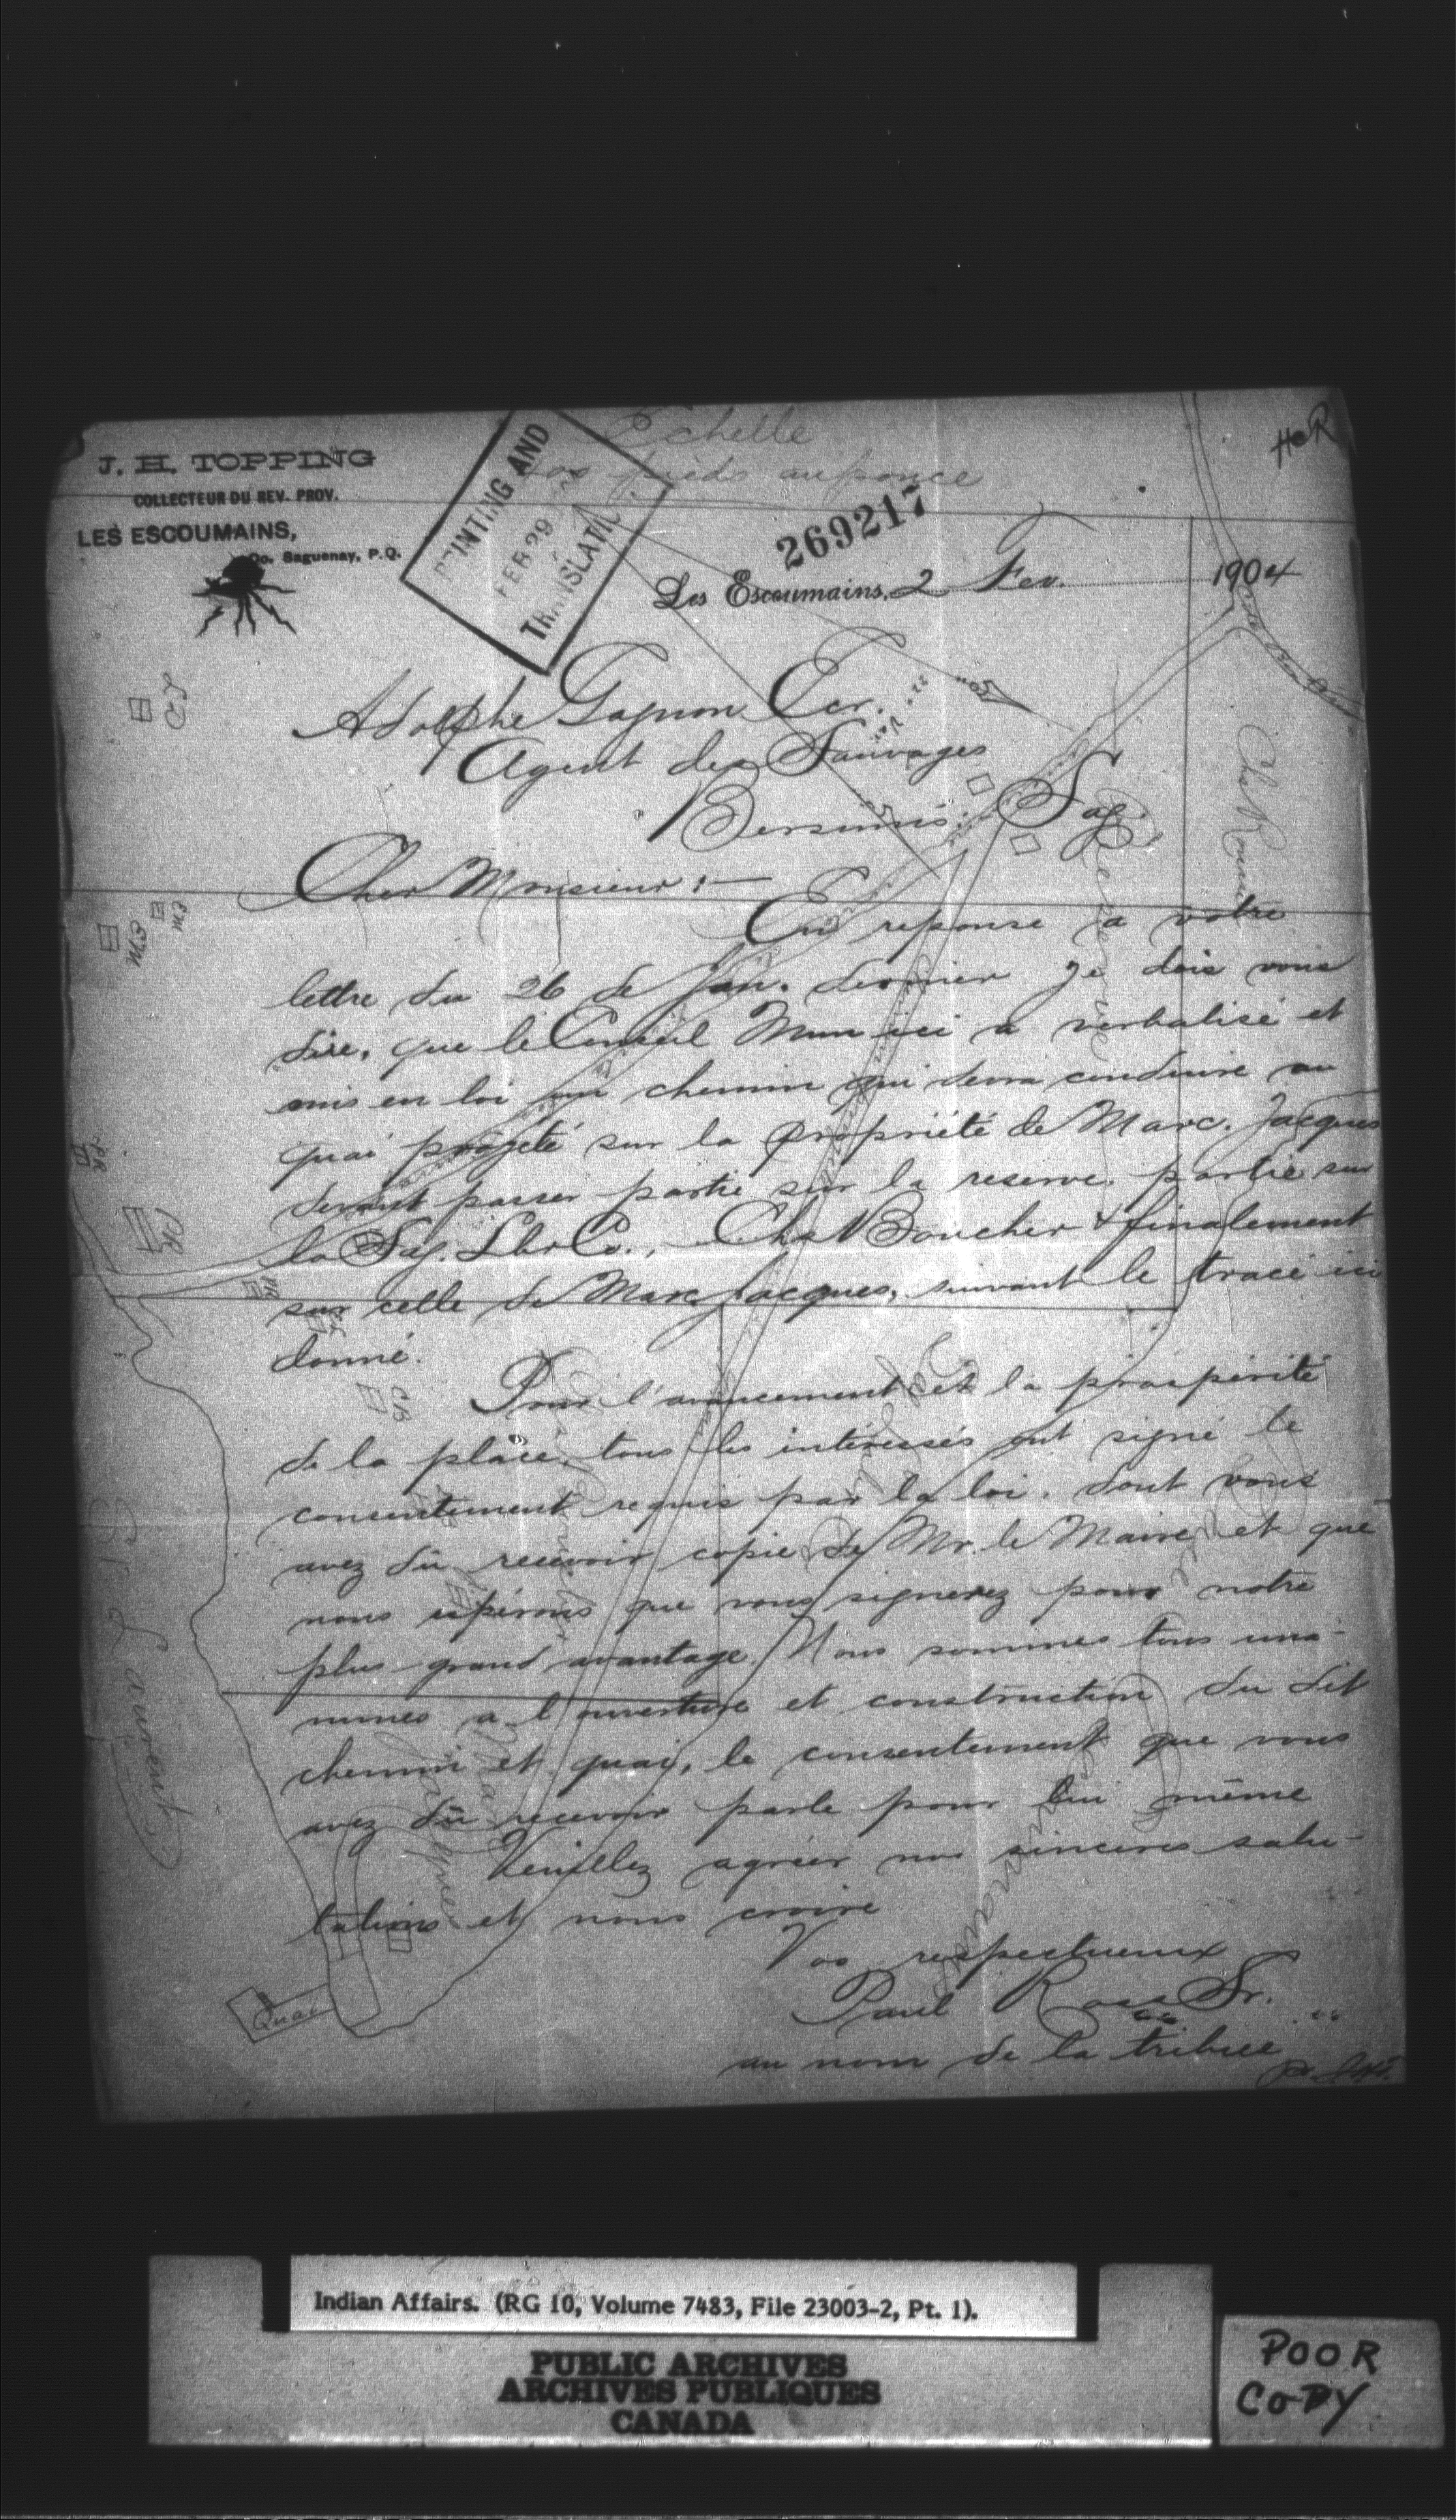 Echelle
pieds au pouce
HCR
J. H. TOPPING
COLLECTEUR DU REV. PROV.
LES ESCOUMAINS,
Co. Saguenay, P.Q.
PRINTING AND
FEB 29
TRANSLATI
269217
Les Escoumains, 2 Fev. 1904
Adolphe Gagnon Ecr.
Agent des Sauvages
Bersimis. Sag.
Cher Monsieur :—
En reponse a votre
lettre du 26 de Jan. dernier je dois vous
dire, que le Conseil Mun ici a verbalisé et
mis en loi un chemin qui devra conduire au
quai projeté sur la propriété de Marc. Jacques
devant passer partie sur la reserve. partie sur
la Sag. Lbr Co., Chs Boucher & finalement
sur celle de Marc Jacques, suivant le tracé ici
donné.
Pour l'avancement et la prospérité
de la place, tous les intéressés ont signé le
consentement requis par la loi. dont vous
avez dû recevoir copie de Mr. le Maire et que
nous espérons que vous signerez pour notre
plus grand avantage. Nous sommes tous una-
nimes a l'ouverture et construction du dit
chemin et quai, le consentement que vous
avez dû recevoir parle pour lui même
Veuillez agréer nos sinceres salu-
tations et nous croire
Vos respectueux
Paul Ross Sr.
au nom de la tribue
St. Laurent
Quai
Reserve
CB
Indian Affairs. (RG 10, Volume 7483, File 23003-2, Pt. 1).
PUBLIC ARCHIVES
ARCHIVES PUBLIQUES
CANADA
POOR
COPY